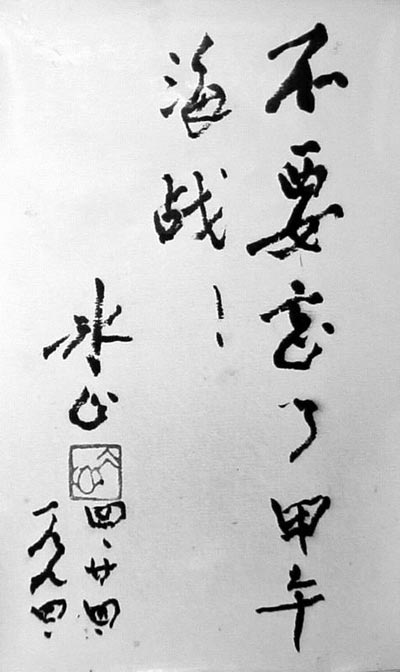 不要忘了甲午
海战!
冰心
四、廿四
一九九四